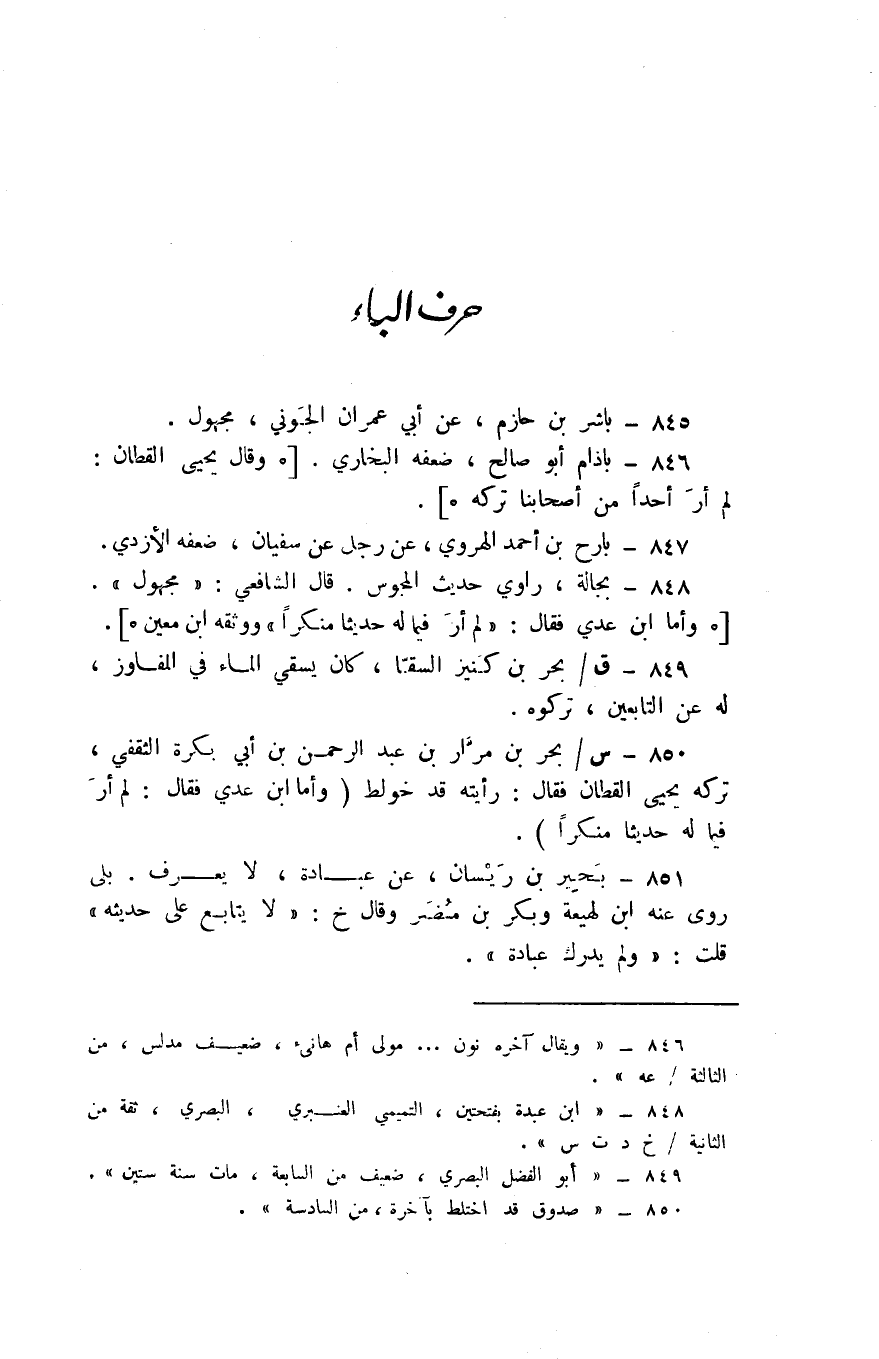 حرف الباء
٨٤٥ – باشر بن حازم ، عن أبي عمران الجَوني ، مجهول .
٨٤٦ – باذام أبو صالح ، ضعفه البخاري . [ه وقال يحيى القطان :
لم أرَ أحداً من أصحابنا تركه ه] .
٨٤٧ – بارح بن أحمد الهروي ، عن رجل عن سفيان ، ضعفه الأزدي .
٨٤٨ – بجالة ، راوي حديث المجوس . قال الشافعي : « مجهول » .
[ه وأما ابن عدي فقال : « لم أرَ فيما له حديثا منكراً » ووثقه ابن معين ه] .
٨٤٩ – ق / بحر بن كَنيز السقّا ، كان يسقي المـاء في المفـاوز ،
له عن التابعين ، تركوه .
٨٥٠ – س / بحر بن مرَّار بن عبد الرحمـن بن أبي بكرة الثقفي ،
تركه يحيى القطان فقال : رأيته قد خولط ( وأما ابن عدي فقال : لم أرَ
فيما له حديثا منكراً ) .
٨٥١ – بَحير بن رَيْسان ، عن عبـادة ، لا يعـرف . بلى
روى عنه ابن لهيعة وبكر بن مُضَر وقال خ : « لا يتابع على حديثه »
قلت : « ولم يدرك عبادة » .
٨٤٦ – « ويقال آخره نون ... مولى أم هانىء ، ضعيـف مدلس ، من
الثالثة / عه » .
٨٤٨ – « ابن عبدة بفتحتين ، التميمي العنـبري ، البصري ، ثقة من
الثانية / خ د ت س » .
٨٤٩ – « أبو الفضل البصري ، ضعيف من السابعة ، مات سنة ستين » .
٨٥٠ – « صدوق قد اختلط بآخرة ، من السادسة » .